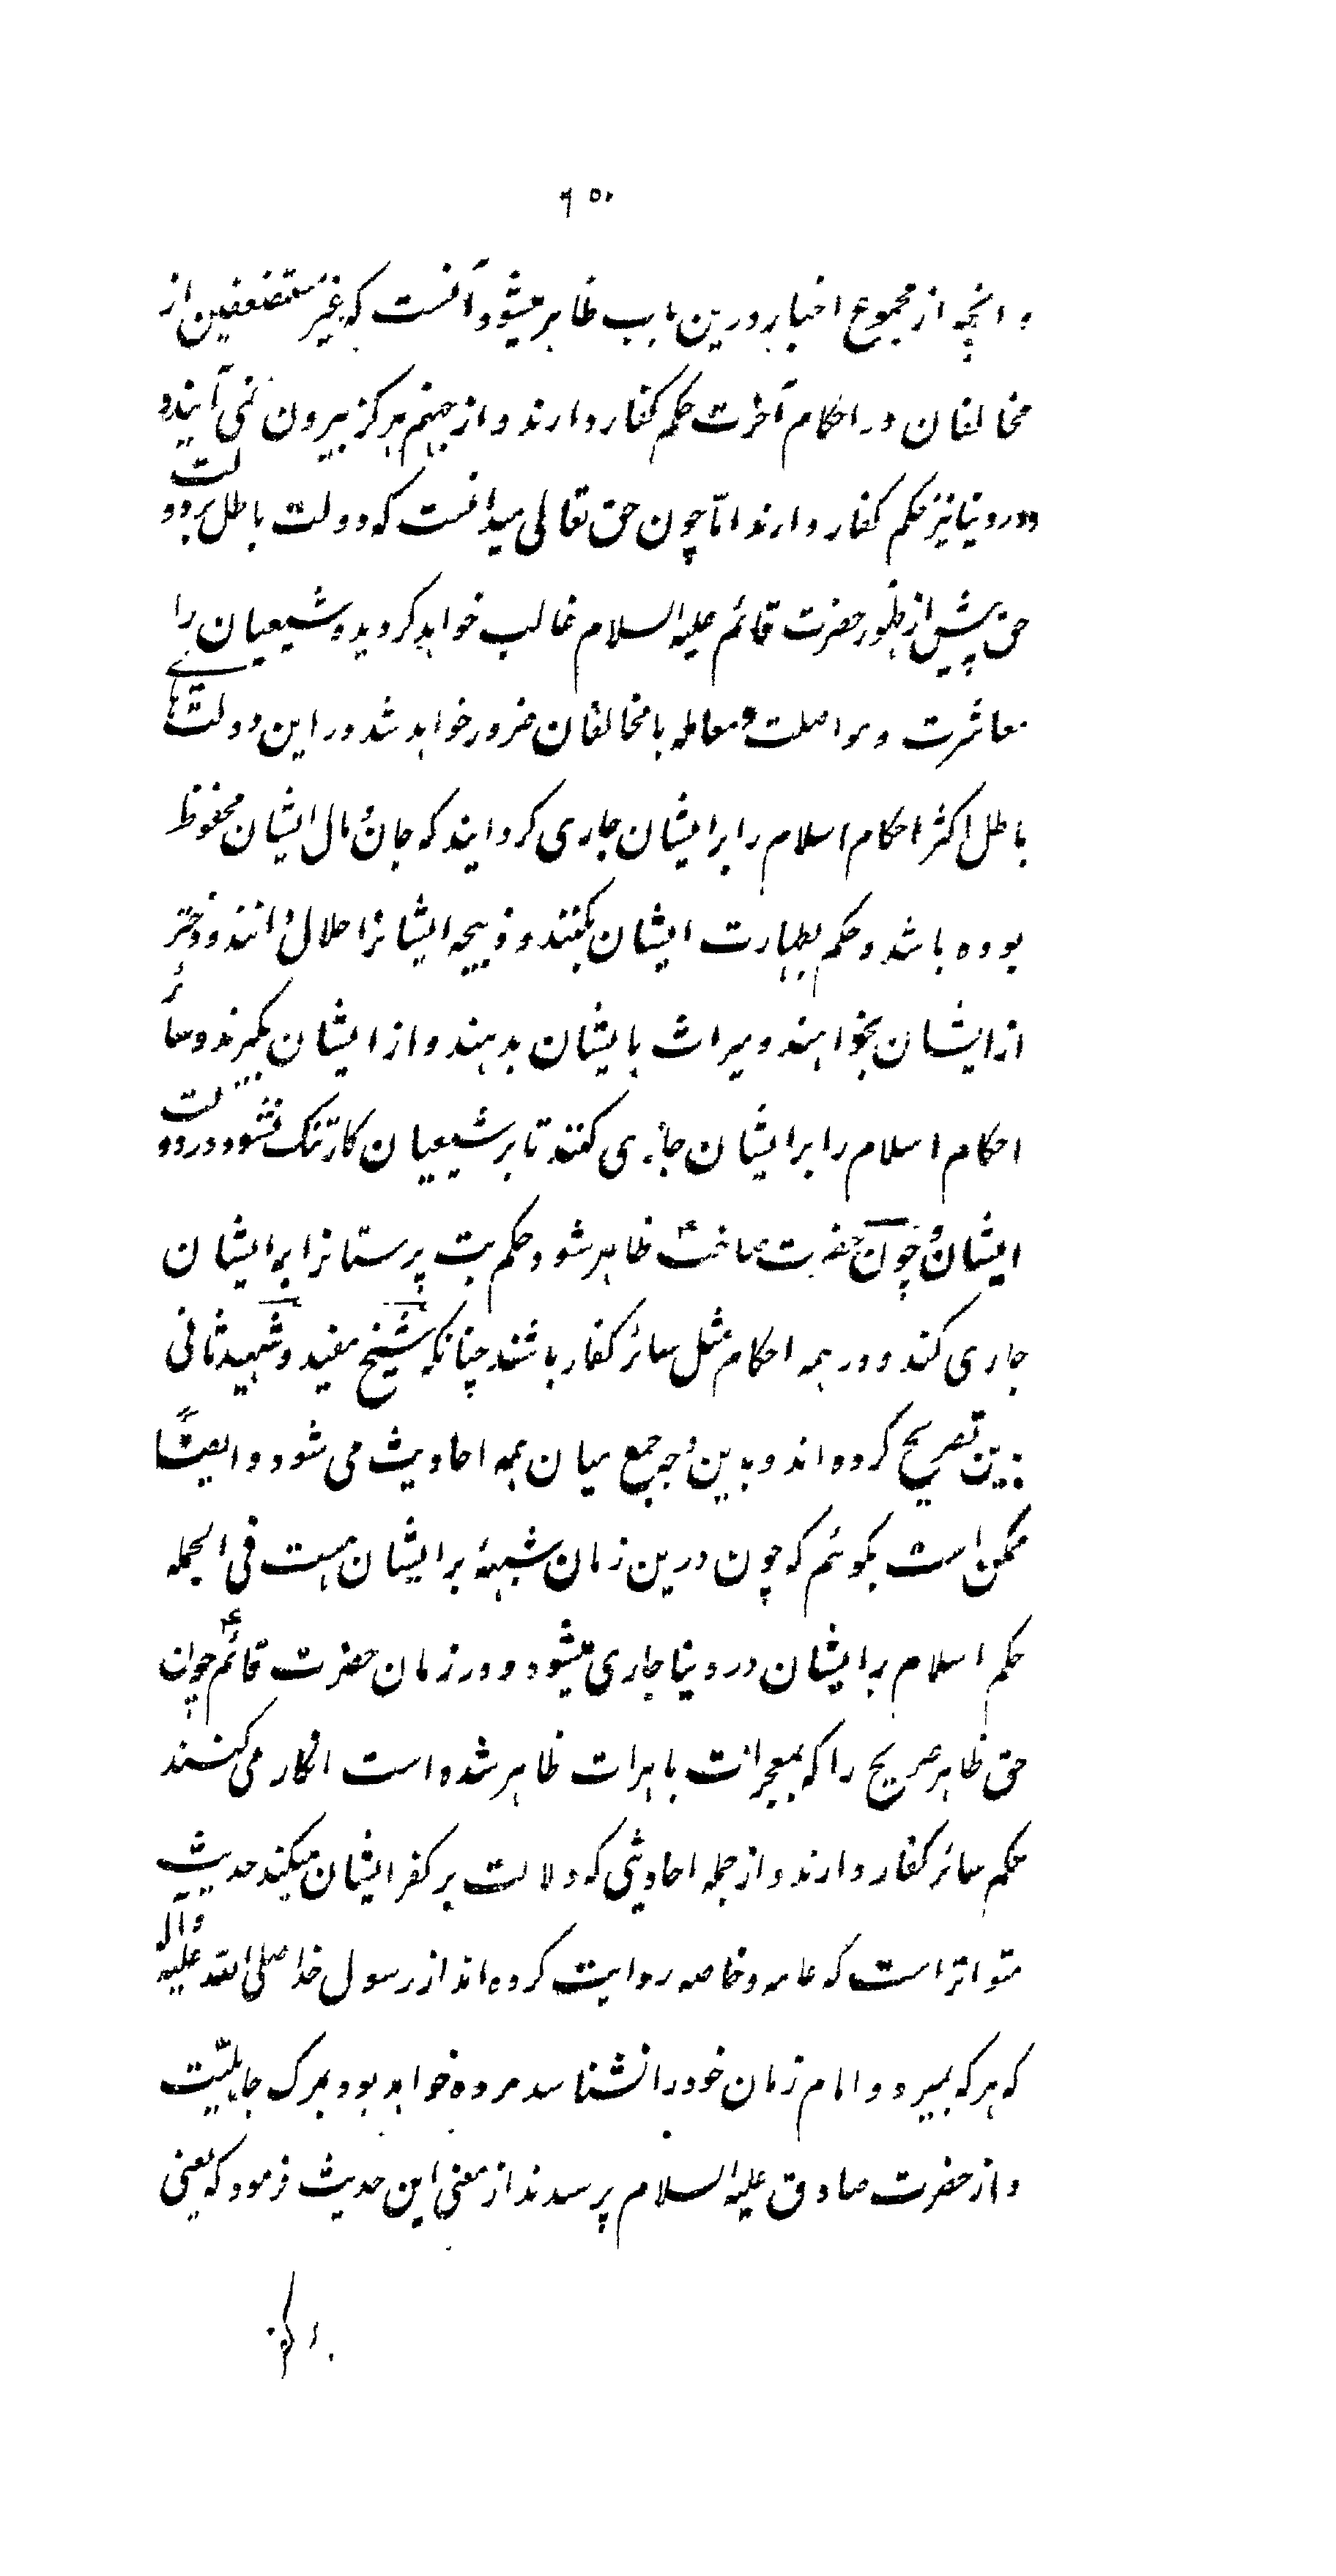 ۶۵۰
و انچه از مجموع اخبار درین باب ظاهر میشود آنست که غیر مستضعفین از
مخالفان در احکام آخرت حکم کفار دارند و از جهنم هرکز بیرون نمی آیند و
در دنیا نیز حکم کفار دارند امّا چون حق تعالی میدانست که دولت باطل بر دولت
حق پیش از ظهور حضرت قائم علیه السلام غالب خواهد کردید و شیعیان را
معاشرت و مواصلت و معامله با مخالفان ضرور خواهد شد در این دولتهای
باطل اکثر احکام اسلام را بر ایشان جاری کردانید که جان و مال ایشان محفوظ
بوده باشد و حکم بطهارت ایشان بکنند و ذبیحه ایشانرا حلال دانند و دختر
از ایشان بخواهند و میراث بایشان بدهند و از ایشان بکیرند و سائر
احکام اسلام را بر ایشان جاری کنند تا بر شیعیان کار تنک نشود در دولت
ایشان و چون حضرت صاحبؑ ظاهر شود حکم بت پرستانرا بر ایشان
جاری کند و در همه احکام مثل سائر کفار باشند چنانکه شیخ مفید و شهید ثانی
بزین تصریح کرده اند و بدین وجه جمع میان همه احادیث می شود و ایضًا
ممکن است بکوئم که چون درین زمان شبههٔ بر ایشان هست فی الجمله
حکم اسلام بر ایشان در دنیا جاری میشود و در زمان حضرت قائمؑ چون
حق ظاهر صریح را که بمعجزات باهرات ظاهر شده است انکار می کنند
حکم سائر کفار دارند و از جمله احادیثی که دلالت بر کفر ایشان میکند حدیث
متواتر است که عامه و خاصه روایت کرده اند از رسول خدا صلی الله علیه و آله
که هر که بمیرد و امام زمان خود را نشناسد مرده خواهد بود بمرک جاهلیّت
و از حضرت صادق علیه السلام پرسیدند از معنی این حدیث فرمود که یعنی